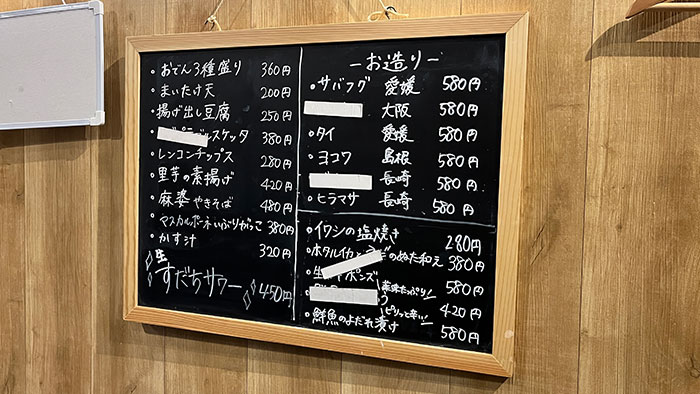 ・おでん3種盛り 360円
・まいたけ天 200円
・揚げ出し豆腐 250円
スケッタ 380円
・レンコンチップス 280円
・里芋の素揚げ 420円
・麻婆やきそば 480円
・マスカルポーネいぶりがっこ 380円
・かす汁 320円
生すだちサワー 450円
ーお造りー
・サバフグ 愛媛 580円
大阪 580円
・タイ 愛媛 580円
・ヨコワ 島根 580円
長崎 580円
・ヒラマサ 長崎 580円
・イワシの塩焼き 280円
・ホタルイカと のぬた和え 380円
・生 ポンズ 580円
薬味たっぷり!
420円
ピリッと辛い!
・鮮魚のよだれ漬け 580円